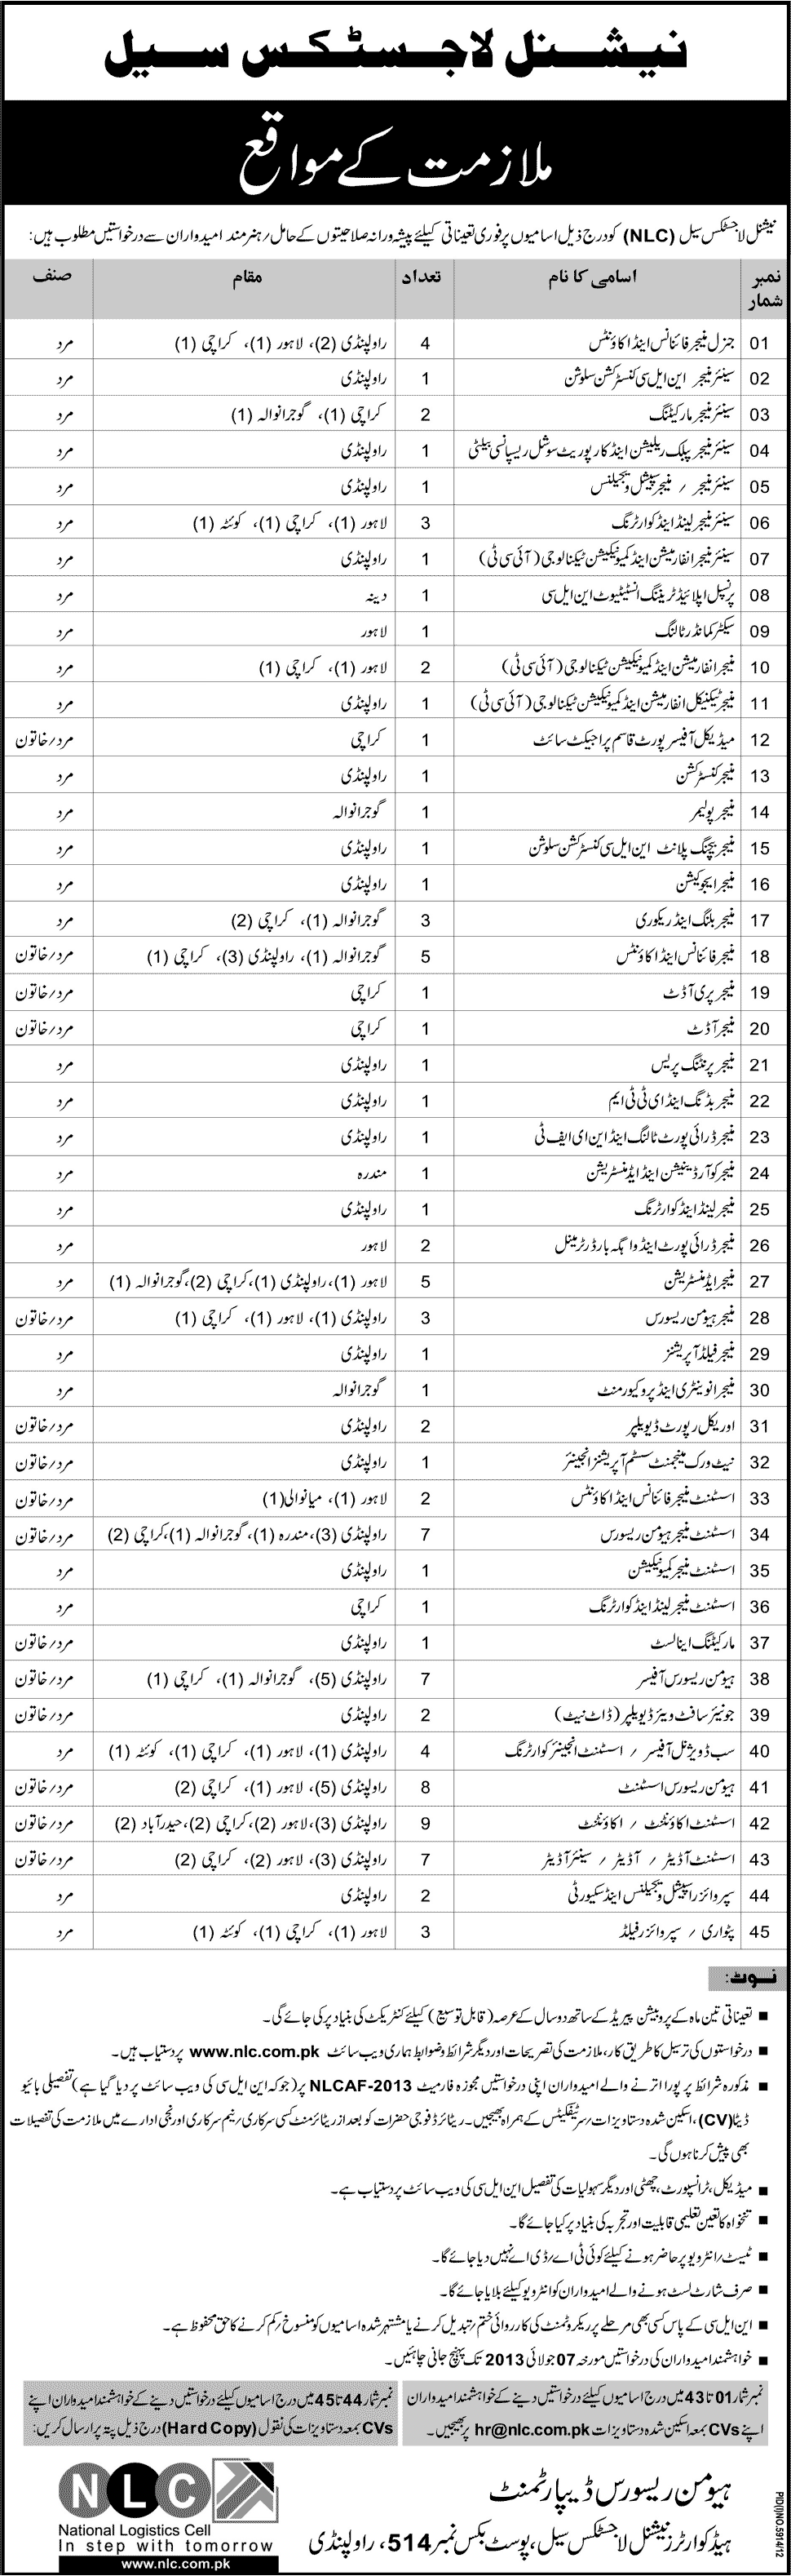 نیشنل لاجسٹکس سیل
ملازمت کے مواقع
نیشنل لاجسٹکس سیل (NLC) کو درج ذیل اسامیوں پر فوری تعیناتی کیلئے پیشہ ورانہ صلاحیتوں کے حامل؍ہنرمند امیدواران سے درخواستیں مطلوب ہیں:
نمبر شمار اسامی کا نام تعداد مقام صنف
01 جنرل منیجر فائنانس اینڈ اکاؤنٹس 4 راولپنڈی (2)، لاہور (1)، کراچی (1) مرد
02 سینئر منیجر این ایل سی کنسٹرکشن سلوشن 1 راولپنڈی مرد
03 سینئر منیجر مارکیٹنگ 2 کراچی (1)، گوجرانوالہ (1) مرد
04 سینئر منیجر پبلک ریلیشن اینڈ کارپوریٹ سوشل ریسپانسی بیلٹی 1 راولپنڈی مرد
05 سینئر منیجر ؍ منیجر سپیشل ویجیلنس 1 راولپنڈی مرد
06 سینئر منیجر لینڈ اینڈ کوارٹرنگ 3 لاہور (1)، کراچی (1)، کوئٹہ (1) مرد
07 سینئر منیجر انفارمیشن اینڈ کمیونیکیشن ٹیکنالوجی (آئی سی ٹی) 1 راولپنڈی مرد
08 پرنسپل اپلائیڈ ٹریننگ انسٹیٹیوٹ این ایل سی 1 دینہ مرد
09 سیکٹر کمانڈر ٹالنگ 1 لاہور مرد
10 منیجر انفارمیشن اینڈ کمیونیکیشن ٹیکنالوجی (آئی سی ٹی) 2 لاہور (1)، کراچی (1) مرد
11 منیجر ٹیکنیکل انفارمیشن اینڈ کمیونیکیشن ٹیکنالوجی (آئی سی ٹی) 1 راولپنڈی مرد
12 میڈیکل آفیسر پورٹ قاسم پراجیکٹ سائٹ 1 کراچی مرد؍خاتون
13 منیجر کنسٹرکشن 1 راولپنڈی مرد
14 منیجر پولیمر 1 گوجرانوالہ مرد
15 منیجر بیچنگ پلانٹ این ایل سی کنسٹرکشن سلوشن 1 راولپنڈی مرد
16 منیجر ایجوکیشن 1 راولپنڈی مرد
17 منیجر بلنگ اینڈ ریکوری 3 گوجرانوالہ (1)، کراچی (2) مرد
18 منیجر فائنانس اینڈ اکاؤنٹس 5 گوجرانوالہ (1)، راولپنڈی (3)، کراچی (1) مرد؍خاتون
19 منیجر پری آڈٹ 1 کراچی مرد؍خاتون
20 منیجر آڈٹ 1 کراچی مرد؍خاتون
21 منیجر پرنٹنگ پریس 1 راولپنڈی مرد
22 منیجر بڈنگ اینڈ ای ٹی ٹی ایم 1 راولپنڈی مرد
23 منیجر ڈرائی پورٹ ٹالنگ اینڈ این ای ایف ٹی 1 راولپنڈی مرد
24 منیجر کوآرڈینیشن اینڈ ایڈمنسٹریشن 1 مندرہ مرد
25 منیجر لینڈ اینڈ کوارٹرنگ 1 راولپنڈی مرد
26 منیجر ڈرائی پورٹ اینڈ واہگہ بارڈر ٹرمینل 2 لاہور مرد
27 منیجر ایڈمنسٹریشن 5 لاہور (1)، راولپنڈی (1)، کراچی (2)، گوجرانوالہ (1) مرد
28 منیجر ہیومن ریسورس 3 راولپنڈی (1)، لاہور (1)، کراچی (1) مرد؍خاتون
29 منیجر فیلڈ آپریشنز 1 راولپنڈی مرد
30 منیجر انوینٹری اینڈ پروکیورمنٹ 1 گوجرانوالہ مرد
31 اوریکل رپورٹ ڈیویلپر 2 راولپنڈی مرد؍خاتون
32 نیٹ ورک مینجمنٹ سسٹم آپریشنز انجینئر 1 راولپنڈی مرد؍خاتون
33 اسسٹنٹ منیجر فائنانس اینڈ اکاؤنٹس 2 لاہور (1)، میانوالی(1) مرد؍خاتون
34 اسسٹنٹ منیجر ہیومن ریسورس 7 راولپنڈی (3)، مندرہ (1)، گوجرانوالہ (1)، کراچی (2) مرد؍خاتون
35 اسسٹنٹ منیجر کمیونیکیشن 1 راولپنڈی مرد
36 اسسٹنٹ منیجر لینڈ اینڈ کوارٹرنگ 1 کراچی مرد
37 مارکیٹنگ اینالسٹ 1 راولپنڈی مرد؍خاتون
38 ہیومن ریسورس آفیسر 7 راولپنڈی (5)، گوجرانوالہ (1)، کراچی (1) مرد؍خاتون
39 جونیئر سافٹ ویئر ڈیویلپر (ڈاٹ نیٹ) 2 راولپنڈی مرد؍خاتون
40 سب ڈویژنل آفیسر ؍ اسسٹنٹ انجینئر کوارٹرنگ 4 راولپنڈی (1)، لاہور (1)، کراچی (1)، کوئٹہ (1) مرد
41 ہیومن ریسورس اسسٹنٹ 8 راولپنڈی (5)، لاہور (1)، کراچی (2) مرد؍خاتون
42 اسسٹنٹ اکاؤنٹنٹ ؍ اکاؤنٹنٹ 9 راولپنڈی (3)، لاہور (2)، کراچی (2)، حیدرآباد (2) مرد؍خاتون
43 اسسٹنٹ آڈیٹر ؍ آڈیٹر ؍ سینئر آڈیٹر 7 راولپنڈی (3)، لاہور (2)، کراچی (2) مرد؍خاتون
44 سپروائزر اسپیشل ویجیلنس اینڈ سکیورٹی 2 راولپنڈی مرد
45 پٹواری ؍ سپروائزر فیلڈ 3 لاہور (1)، کراچی (1)، کوئٹہ (1) مرد
نوٹ:
■ تعیناتی تین ماہ کے پروبیشن پیریڈ کے ساتھ دو سال کے عرصہ (قابل توسیع) کیلئے کنٹریکٹ کی بنیاد پر کی جائے گی۔
■ درخواستوں کی ترسیل کا طریق کار، ملازمت کی تصریحات اور دیگر شرائط و ضوابط ہماری ویب سائٹ www.nlc.com.pk پر دستیاب ہیں۔
■ مذکورہ شرائط پر پورا اترنے والے امیدواران اپنی درخواستیں مجوزہ فارمیٹ NLCAF-2013 پر (جو کہ این ایل سی کی ویب سائٹ پر دیا گیا ہے) تفصیلی بائیو
ڈیٹا (CV)، اسکین شدہ دستاویزات؍سرٹیفکیٹس کے ہمراہ بھیجیں۔ ریٹائرڈ فوجی حضرات کو بعد از ریٹائرمنٹ کسی سرکاری؍نیم سرکاری اور نجی ادارے میں ملازمت کی تفصیلات
بھی پیش کرنا ہوں گی۔
■ میڈیکل، ٹرانسپورٹ، چھٹی اور دیگر سہولیات کی تفصیل این ایل سی کی ویب سائٹ پر دستیاب ہے۔
■ تنخواہ کا تعین تعلیمی قابلیت اور تجربہ کی بنیاد پر کیا جائے گا۔
■ ٹیسٹ؍انٹرویو پر حاضر ہونے کیلئے کوئی ٹی اے؍ڈی اے نہیں دیا جائے گا۔
■ صرف شارٹ لسٹ ہونے والے امیدواران کو انٹرویو کیلئے بلایا جائے گا۔
■ این ایل سی کے پاس کسی بھی مرحلے پر ریکروٹمنٹ کی کارروائی ختم؍تبدیل کرنے یا مشتہر شدہ اسامیوں کو منسوخ؍کم کرنے کا حق محفوظ ہے۔
■ خواہشمند امیدواران کی درخواستیں مورخہ 07 جولائی 2013 تک پہنچ جانی چاہئیں۔
نمبر شمار 01 تا 43 میں درج اسامیوں کیلئے درخواستیں دینے کے خواہشمند امیدواران
اپنے CVs بمعہ اسکین شدہ دستاویزات hr@nlc.com.pk پر بھیجیں۔
نمبر شمار 44 تا 45 میں درج اسامیوں کیلئے درخواستیں دینے کے خواہشمند امیدواران اپنے
CVs بمعہ دستاویزات کی نقول (Hard Copy) درج ذیل پتہ پر ارسال کریں:
ہیومن ریسورس ڈیپارٹمنٹ
ہیڈکوارٹرز نیشنل لاجسٹکس سیل، پوسٹ بکس نمبر 514، راولپنڈی
NLC
National Logistics Cell
In step with tomorrow
www.nlc.com.pk
PID(I)NO.5914/12